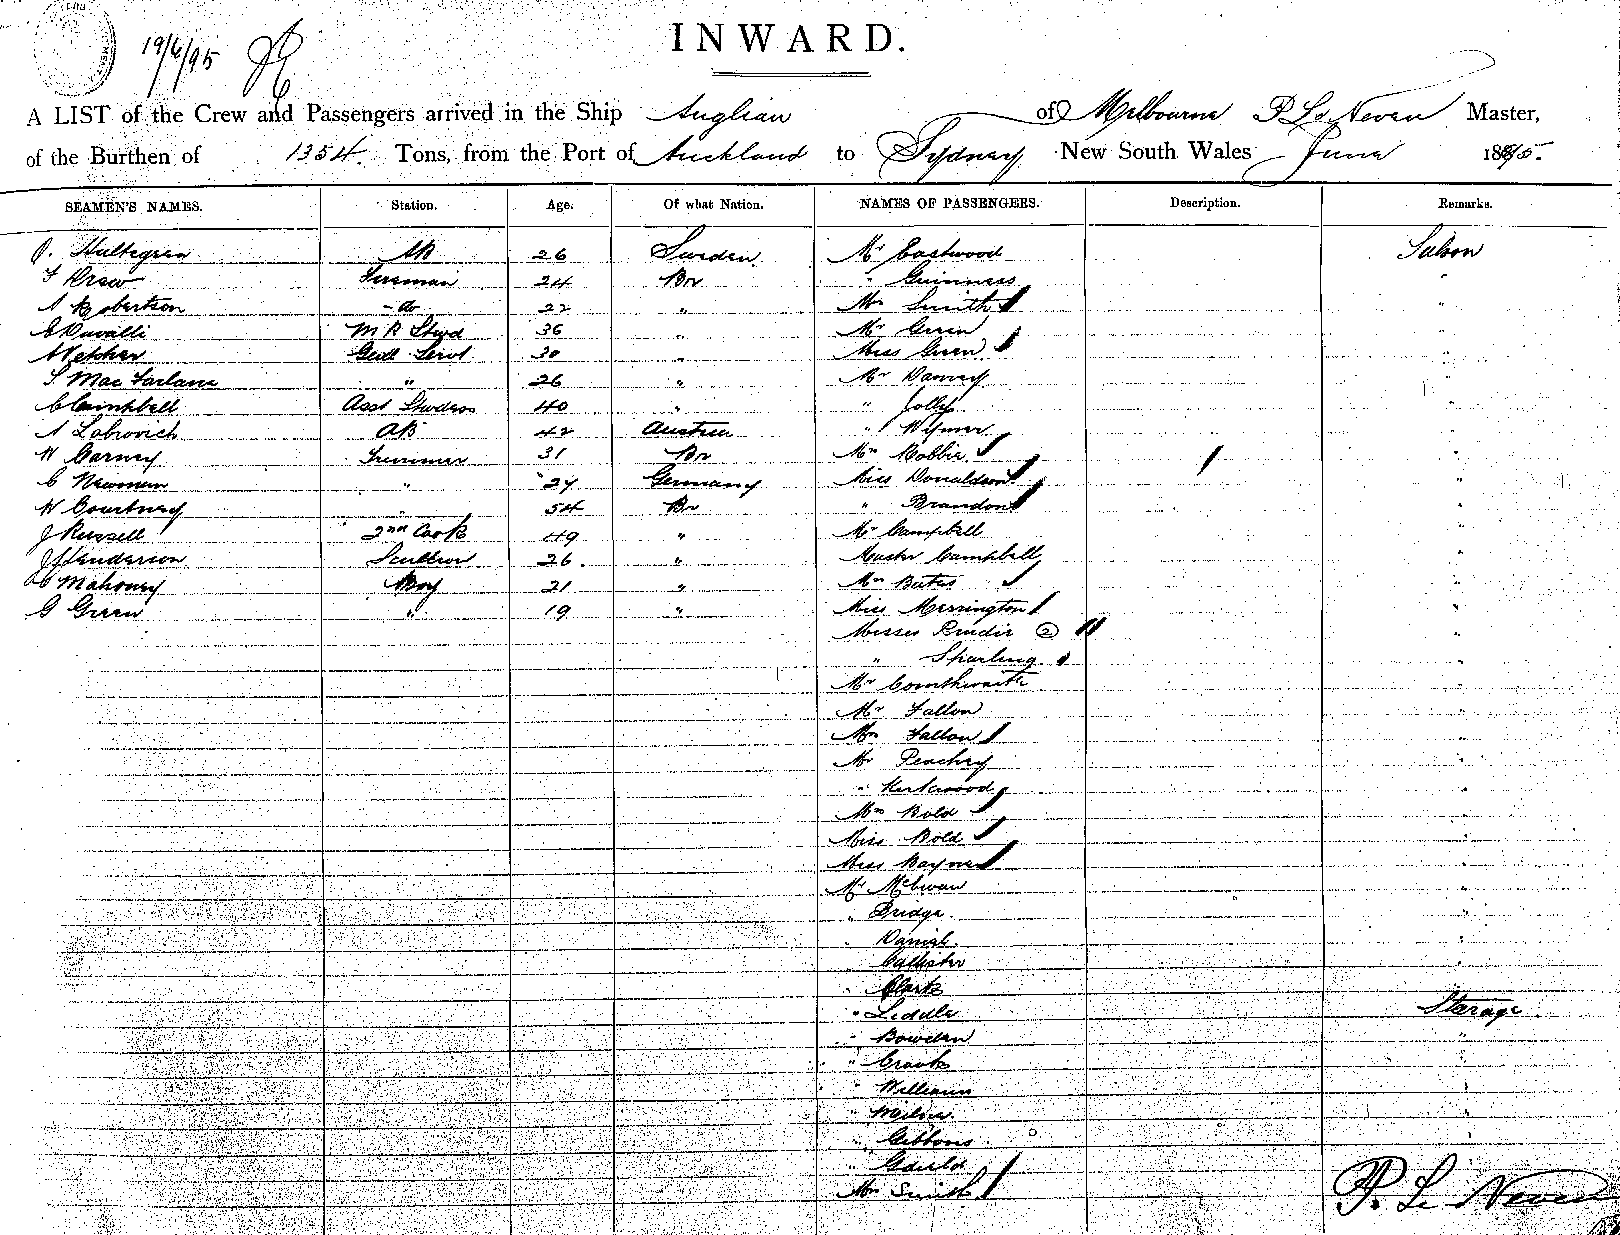 19/6/95
INWARD.
A LIST of the Crew and Passengers arrived in the Ship Anglian of Melbourne P Le Neven Master,
of the Burthen of 1354 Tons, from the Port of Auckland to Sydney New South Wales June 1895.
SEAMEN'S NAMES. Station. Age. Of what Nation. NAMES OF PASSENGERS. Description. Remarks.
J. Hultegren AB 26 Sweden Mr Eastwood Saloon
F Drew Fireman 24 Br " Guinness
A Robertson - do 22 " Mrs Smith "
E Davalli M R Stwd 36 " Mr Green "
Genl Servt 30 " Miss Green "
S MacFarlane " 26 " Mr "
C Campbell Asst Stwdess 40 " " Jolly "
A Labrovich AB 42 Austria "
W Carney Trimmer 31 Br Mrs Robbie "
C Newman " 27 Germany Miss Donaldson "
W Courtney " 54 Br " Brandon "
J Russell 2nd Cook 49 " Mr Campbell "
J Henderson Scullion 26. " Master Campbell "
Mahoney Boy 21 " Mrs Bates "
G Green " 19 " Miss Merrington "
Misses 2 "
" Sparling "
Mr Cornthwaite "
Mr Fallon "
Mrs Fallon "
Mr Peachey "
" Kirkwood "
Mrs Bold "
Miss Bold "
Miss Rayner "
Mr McEwan "
" Bridge "
" Daniel "
" Callister "
" Clark
" Liddle Sterage
" Bowden "
" Crook
" William
" Milne
" Gibbons
" Gauld
Mrs Smith
P. Le Neven